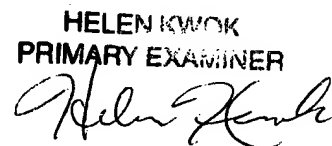 HELEN KWOK
PRIMARY EXAMINER
Helen Kwok